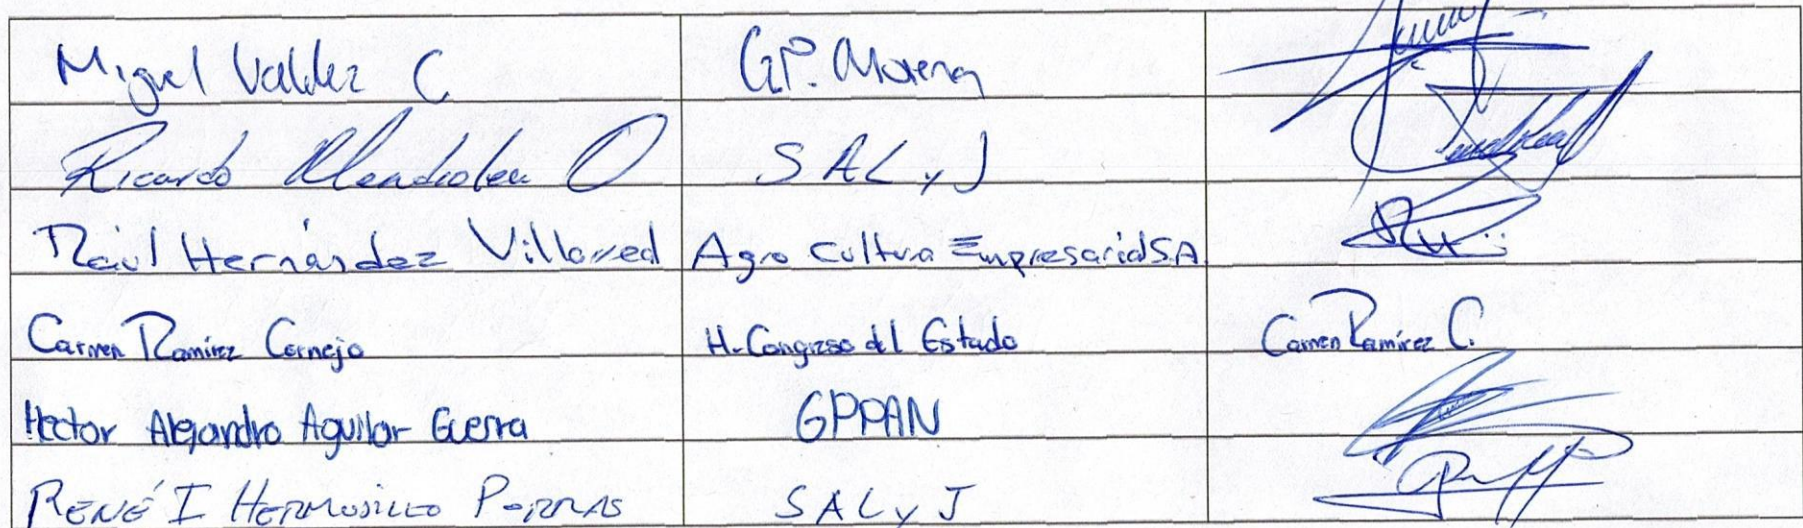 Miguel Valdez C GP. Morena
Ricardo Mendiolea O SALyJ
Raúl Hernández Villarreal Agro Cultura Empresarial S.A.
Carmen Ramírez Cornejo H. Congreso del Estado Carmen Ramírez C.
Hector Alejandro Aguilar Guerra GPPAN
RENÉ I HERMOSILLO PORRAS SALyJ